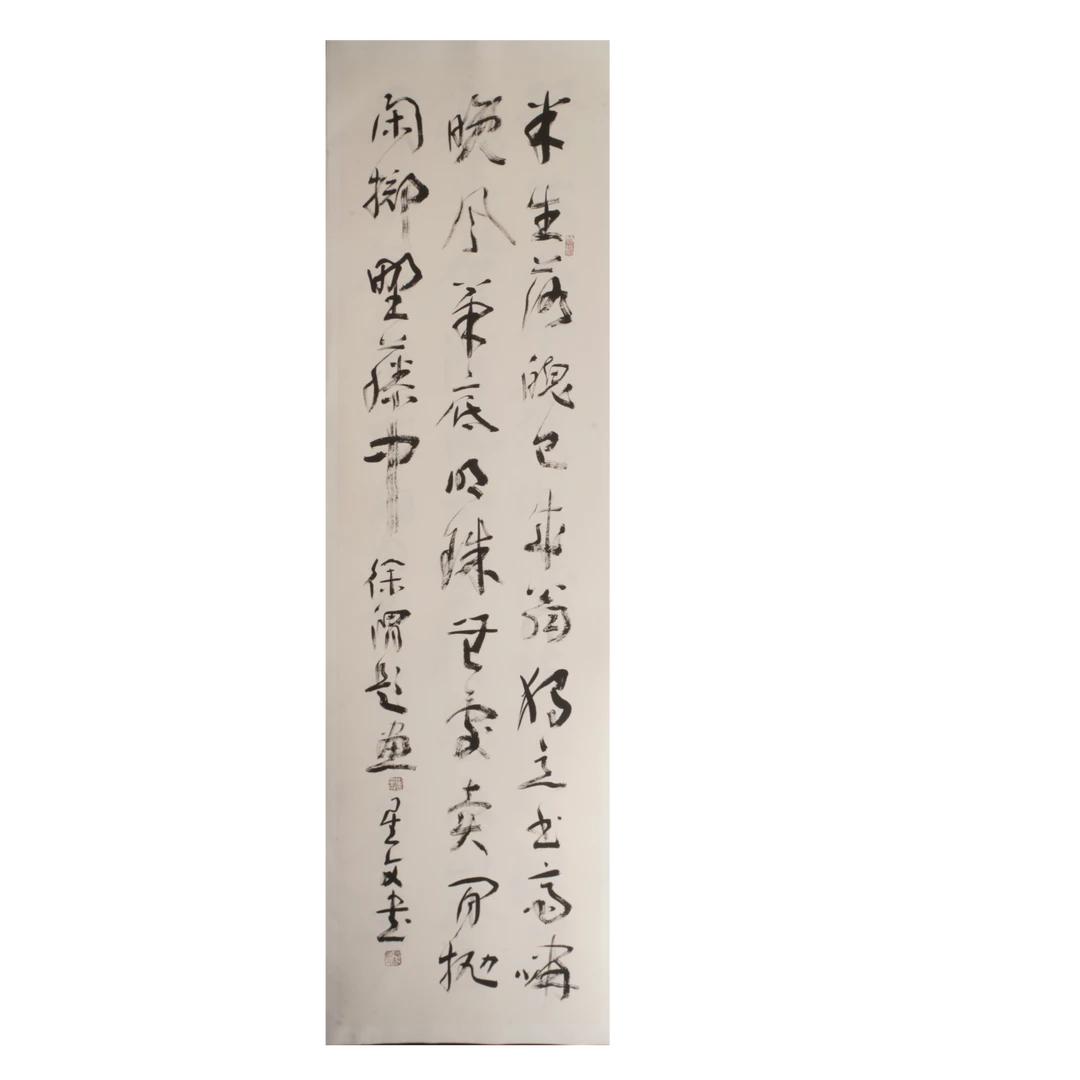 半生落魄已成翁独立书斋啸
晚风筆底明珠無處卖闲抛
闲掷野藤中 徐渭题画 星文書